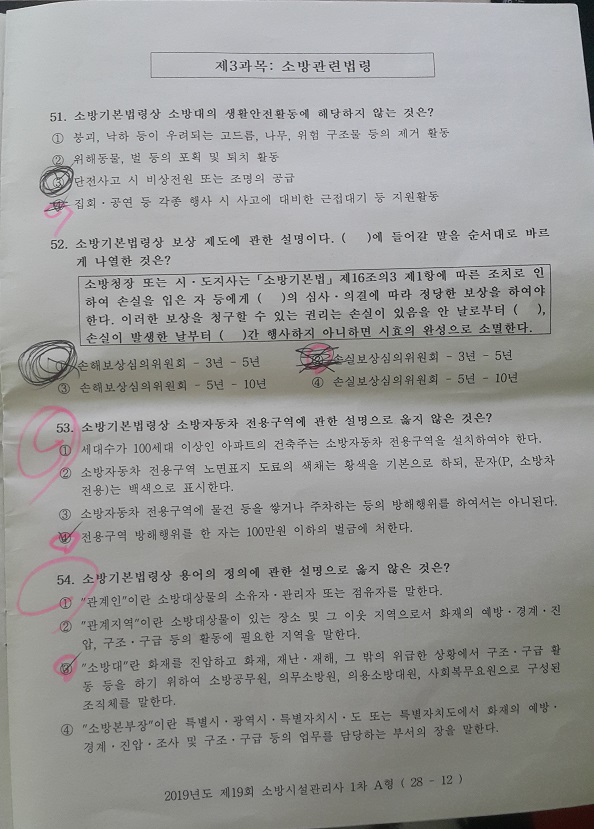 제3과목: 소방관련법령
51. 소방기본법령상 소방대의 생활안전활동에 해당하지 않는 것은?
① 붕괴, 낙하 등이 우려되는 고드름, 나무, 위험 구조물 등의 제거 활동
② 위해동물, 벌 등의 포획 및 퇴치 활동
③ 단전사고 시 비상전원 또는 조명의 공급
④ 집회·공연 등 각종 행사 시 사고에 대비한 근접대기 등 지원활동
52. 소방기본법령상 보상 제도에 관한 설명이다. ( )에 들어갈 말을 순서대로 바르
게 나열한 것은?
소방청장 또는 시·도지사는 「소방기본법」 제16조의3 제1항에 따른 조치로 인
하여 손실을 입은 자 등에게 ( )의 심사·의결에 따라 정당한 보상을 하여야
한다. 이러한 보상을 청구할 수 있는 권리는 손실이 있음을 안 날로부터 ( ),
손실이 발생한 날부터 ( )간 행사하지 아니하면 시효의 완성으로 소멸한다.
① 손해보상심의위원회 - 3년 - 5년 ② 손실보상심의위원회 - 3년 - 5년
③ 손해보상심의위원회 - 5년 - 10년 ④ 손실보상심의위원회 - 5년 - 10년
53. 소방기본법령상 소방자동차 전용구역에 관한 설명으로 옳지 않은 것은?
① 세대수가 100세대 이상인 아파트의 건축주는 소방자동차 전용구역을 설치하여야 한다.
② 소방자동차 전용구역 노면표지 도료의 색채는 황색을 기본으로 하되, 문자(P, 소방차
전용)는 백색으로 표시한다.
③ 소방자동차 전용구역에 물건 등을 쌓거나 주차하는 등의 방해행위를 하여서는 아니된다.
④ 전용구역 방해행위를 한 자는 100만원 이하의 벌금에 처한다.
54. 소방기본법령상 용어의 정의에 관한 설명으로 옳지 않은 것은?
① "관계인"이란 소방대상물의 소유자·관리자 또는 점유자를 말한다.
② "관계지역"이란 소방대상물이 있는 장소 및 그 이웃 지역으로서 화재의 예방·경계·진
압, 구조·구급 등의 활동에 필요한 지역을 말한다.
③ "소방대"란 화재를 진압하고 화재, 재난·재해, 그 밖의 위급한 상황에서 구조·구급 활
동 등을 하기 위하여 소방공무원, 의무소방원, 의용소방대원, 사회복무요원으로 구성된
조직체를 말한다.
④ "소방본부장"이란 특별시·광역시·특별자치시·도 또는 특별자치도에서 화재의 예방·
경계·진압·조사 및 구조·구급 등의 업무를 담당하는 부서의 장을 말한다.
2019년도 제19회 소방시설관리사 1차 A형 ( 28 - 12 )